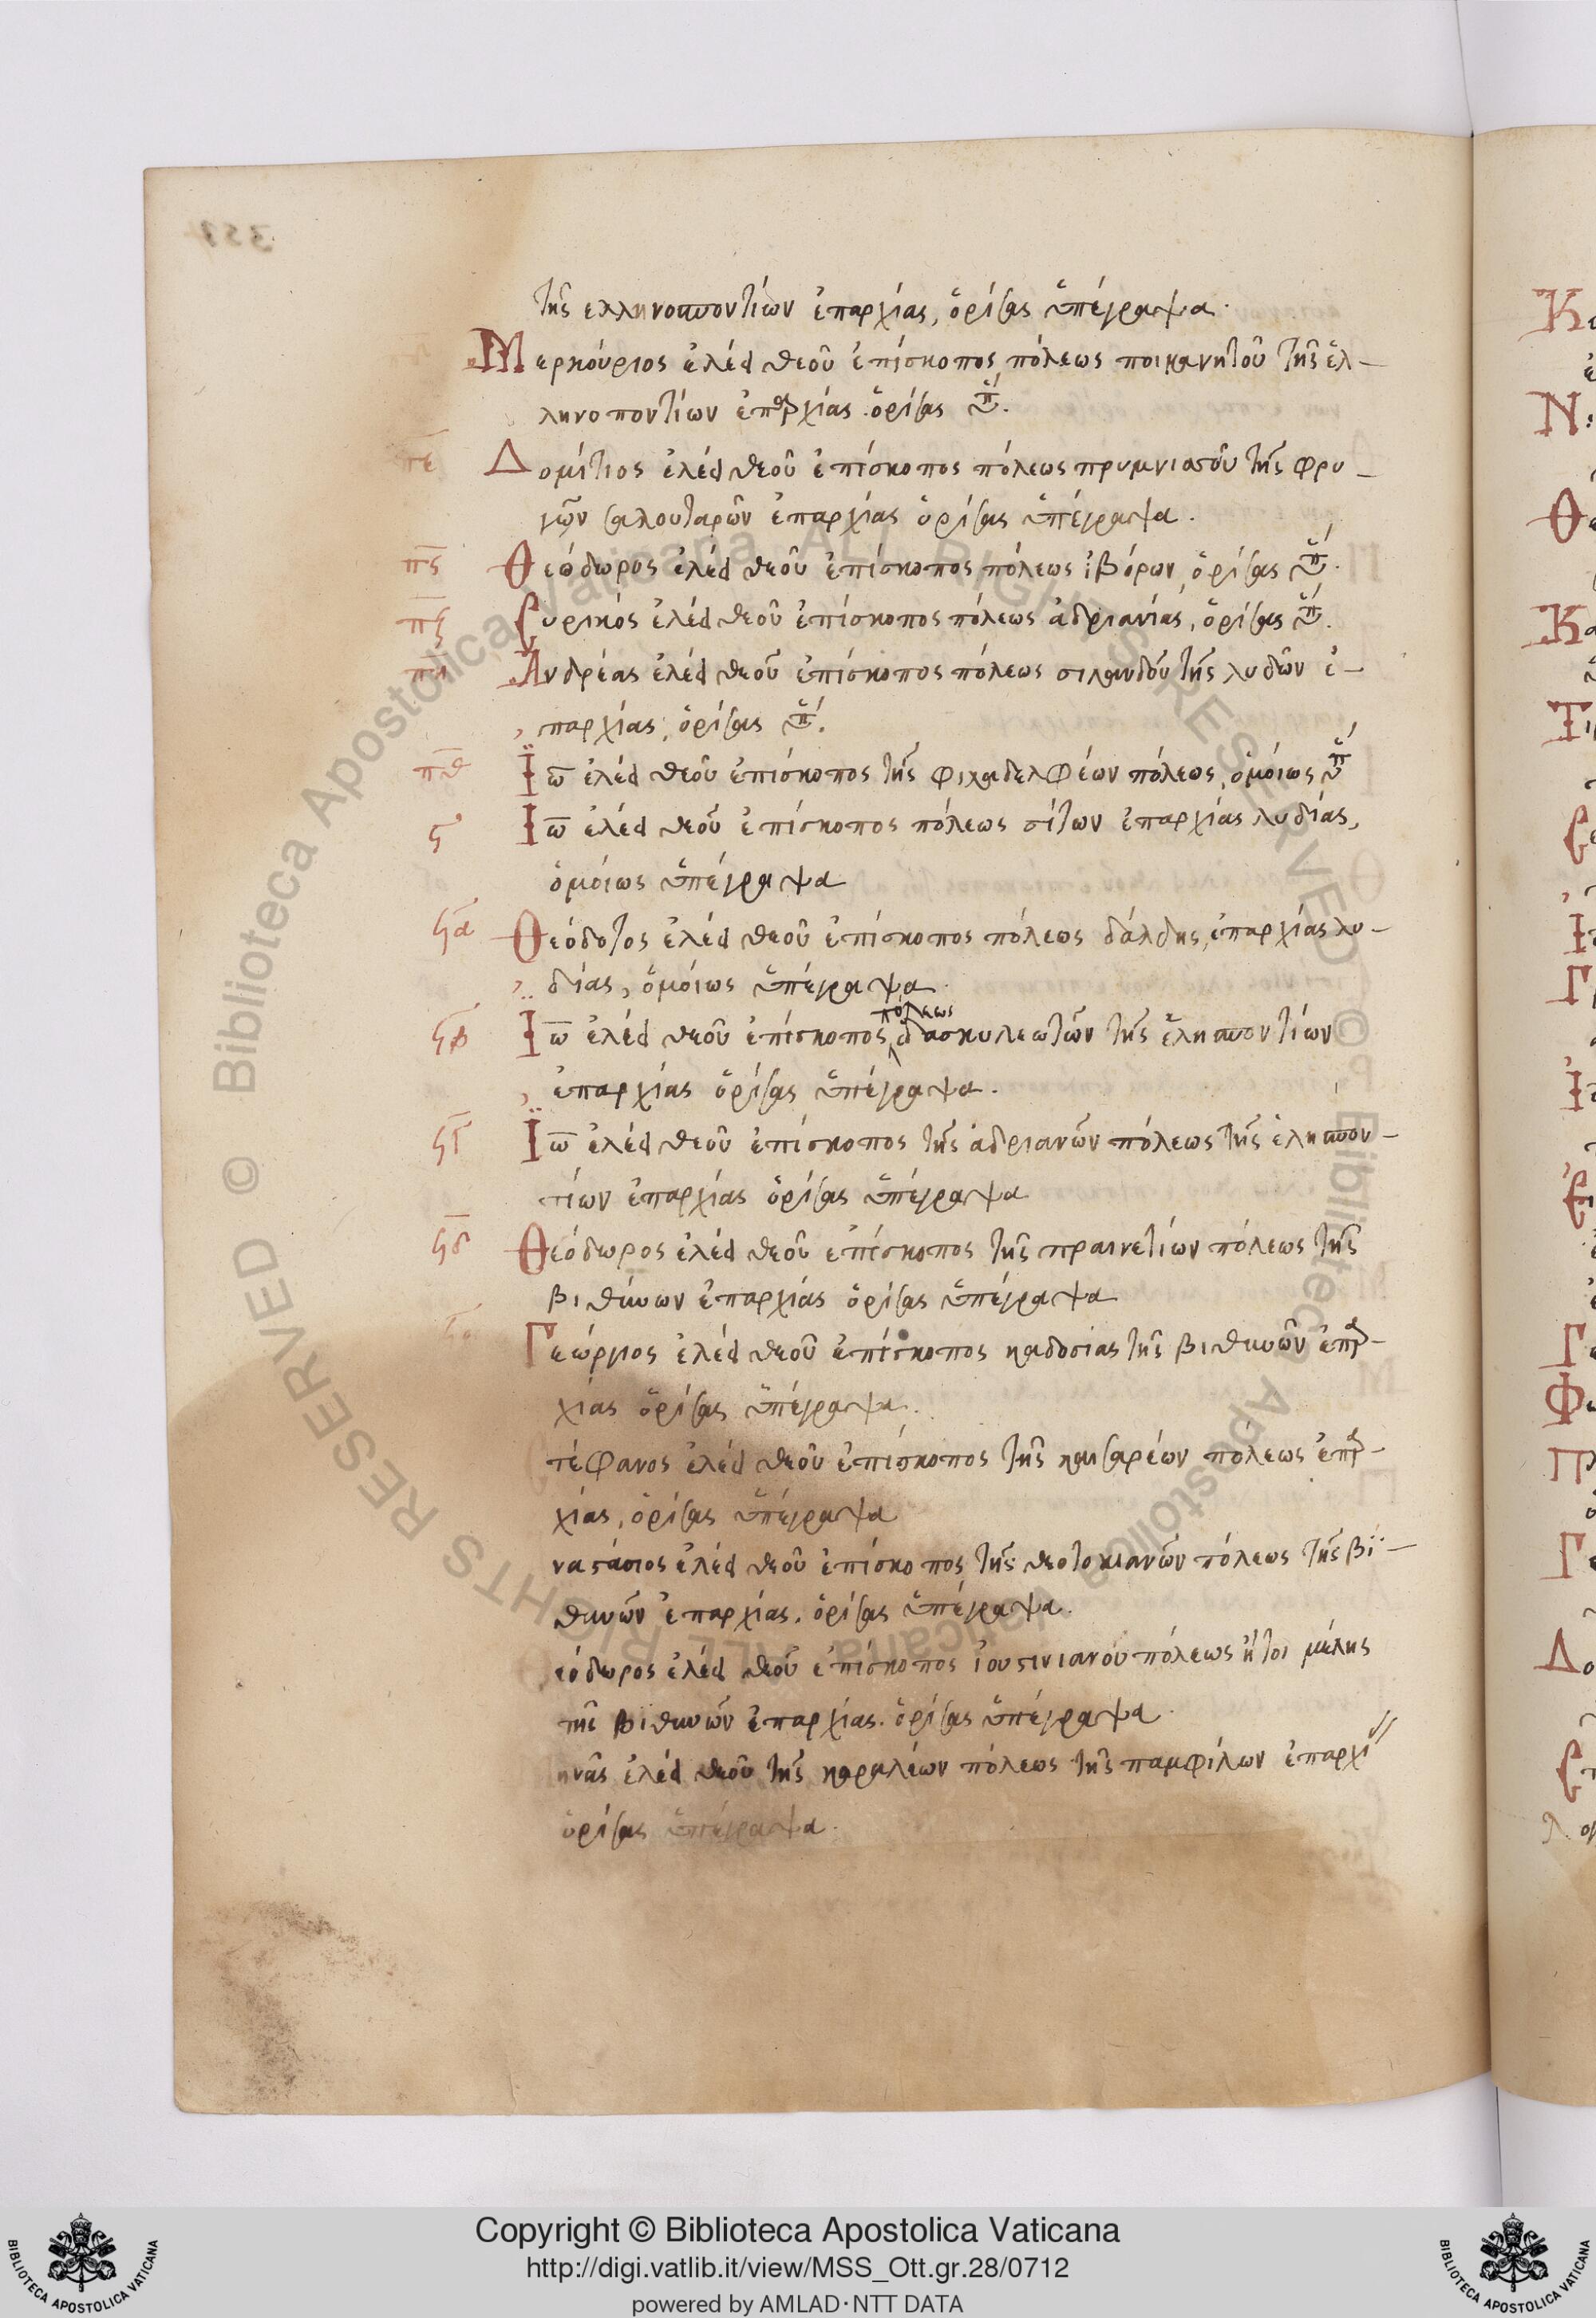 τῆς ελληνοπυοντίων ἐπαρχίας, ὁρίσας ὑπέγραψα.
Μερκόυριος ἐλέω θεοῦ ἐπίσκοπος πόλεως ποιμανητοῦ τῆς ἑλ-
ληνοποντίων ἐπαρχίας ὁρίσας ὑπ.
πε Δομίτιος ἐλέω θεοῦ ἐπίσκοπος πόλεως πρυμνιασοῦ τῆς φρυ-
γῶν σαλουταρῶν ἐπαρχίας ὁρίσας ὑπέγραψα.
πς Θεόδωρος ἐλέω θεοῦ ἐπίσκοπος πόλεως ἰβόρων, ὁρίσας ὑπ.
πζ Συρικός ἐλέω θεοῦ ἐπίσκοπος πόλεως ἀδριανίας, ὁρίσας ὑπ.
πη Ἀνδρέας ἐλέω θεοῦ ἐπίσκοπος πόλεως σιλανδοῦ τῆς λυδῶν ἐ-
παρχίας, ὁρίσας ὑπ.
πθ Ἰω ἐλέω θεοῦ ἐπίσκοπος τῆς φιλαδελφέων πόλεως, ὁμοίως ὑπ
ϟ Ἰω ἐλέω θεοῦ ἐπίσκοπος πόλεως σίτων ἐπαρχίας λυδίας,
ὁμοίως ὑπέγραψα
ϟα Θεόδοτος ἐλέω θεοῦ ἐπίσκοπος πόλεως δάλδης, ἐπαρχίας λυ-
δίας, ὁμοίως ὑπέγραψα.
πόλεως
ϟβ Ἰω ἐλέω θεοῦ ἐπίσκοπος δασκυλεωτῶν τῆς ἑληπυοντίων
ἐπαρχίας ὁρίσας ὑπέγραψα.
ϟγ Ἰω ἐλέω θεοῦ ἐπίσκοπος τῆς ἀδριανῶν πόλεως τῆς ἑληπυον-
τίων ἐπαρχίας ὁρίσας ὑπέγραψα
ϟδ Θεόδωρος ἐλέω θεοῦ ἐπίσκοπος τῆς πραινετίων πόλεως τῆς
βιθύνων ἐπαρχίας ὁρίσας ὑπέγραψα
Γεώργιος ἐλέω θεοῦ ἐπίσκοπος καδοσίας τῆς βιθυνῶν ἐπαρ-
χίας ὁρίσας ὑπέγραψα.
τέφανος ἐλέω θεοῦ ἐπίσκοπος τῆς καισαρέων πόλεως ἐπαρ-
χίας, ὁρίσας ὑπέγραψα
ναστάσιος ἐλέω θεοῦ ἐπίσκοπος τῆς θεοτοκιανῶν πόλεως τῆς βι-
θυνῶν ἐπαρχίας. ὁρίσας ὑπέγραψα.
εόδωρος ἐλέω θεοῦ ἐπίσκοπος ἰουστινιανοῦ πόλεως ἤτοι μέλης
τῆς βιθυνῶν ἐπαρχίας. ὁρίσας ὑπέγραψα.
ηνᾶς ἐλέω θεοῦ τῆς καραλέων πόλεως τῆς παμφίλων ἐπαρχί
ὁρίσας ὑπέγραψα.
Copyright © Biblioteca Apostolica Vaticana
http://digi.vatlib.it/view/MSS_Ott.gr.28/0712
powered by AMLAD·NTT DATA
BIBLIOTECA APOSTOLICA VATICANA
BIBLIOTECA APOSTOLICA VATICANA